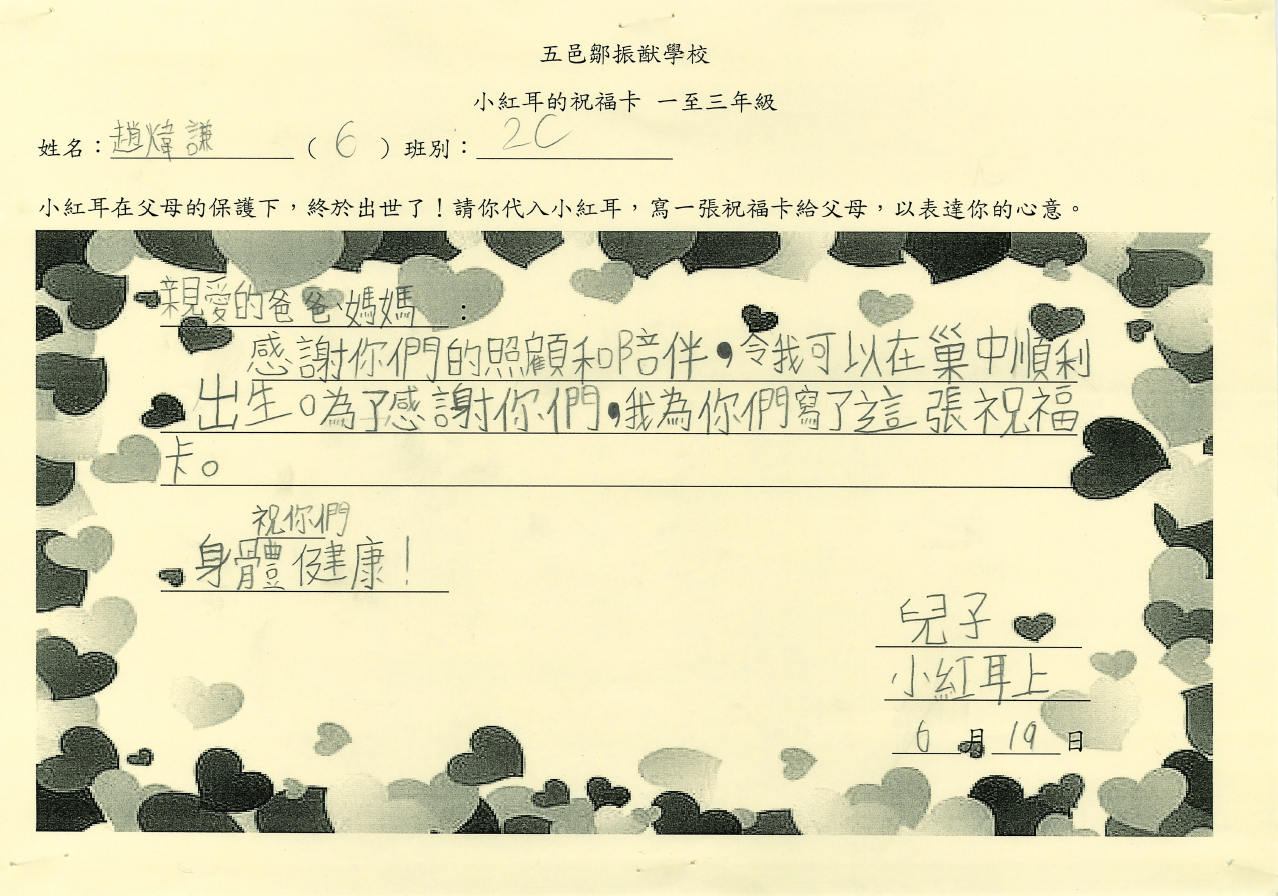 五邑鄒振猷學校
小紅耳的祝福卡 一至三年級
姓名：趙煒謙（6）班別：2C
小紅耳在父母的保護下，終於出世了！請你代入小紅耳，寫一張祝福卡給父母，以表達你的心意。
親愛的爸爸、媽媽：
感謝你們的照顧和陪伴，令我可以在巢中順利
出生。為了感謝你們，我為你們寫了這張祝福
卡。
祝你們
身體健康！
兒子
小紅耳上
6月19日